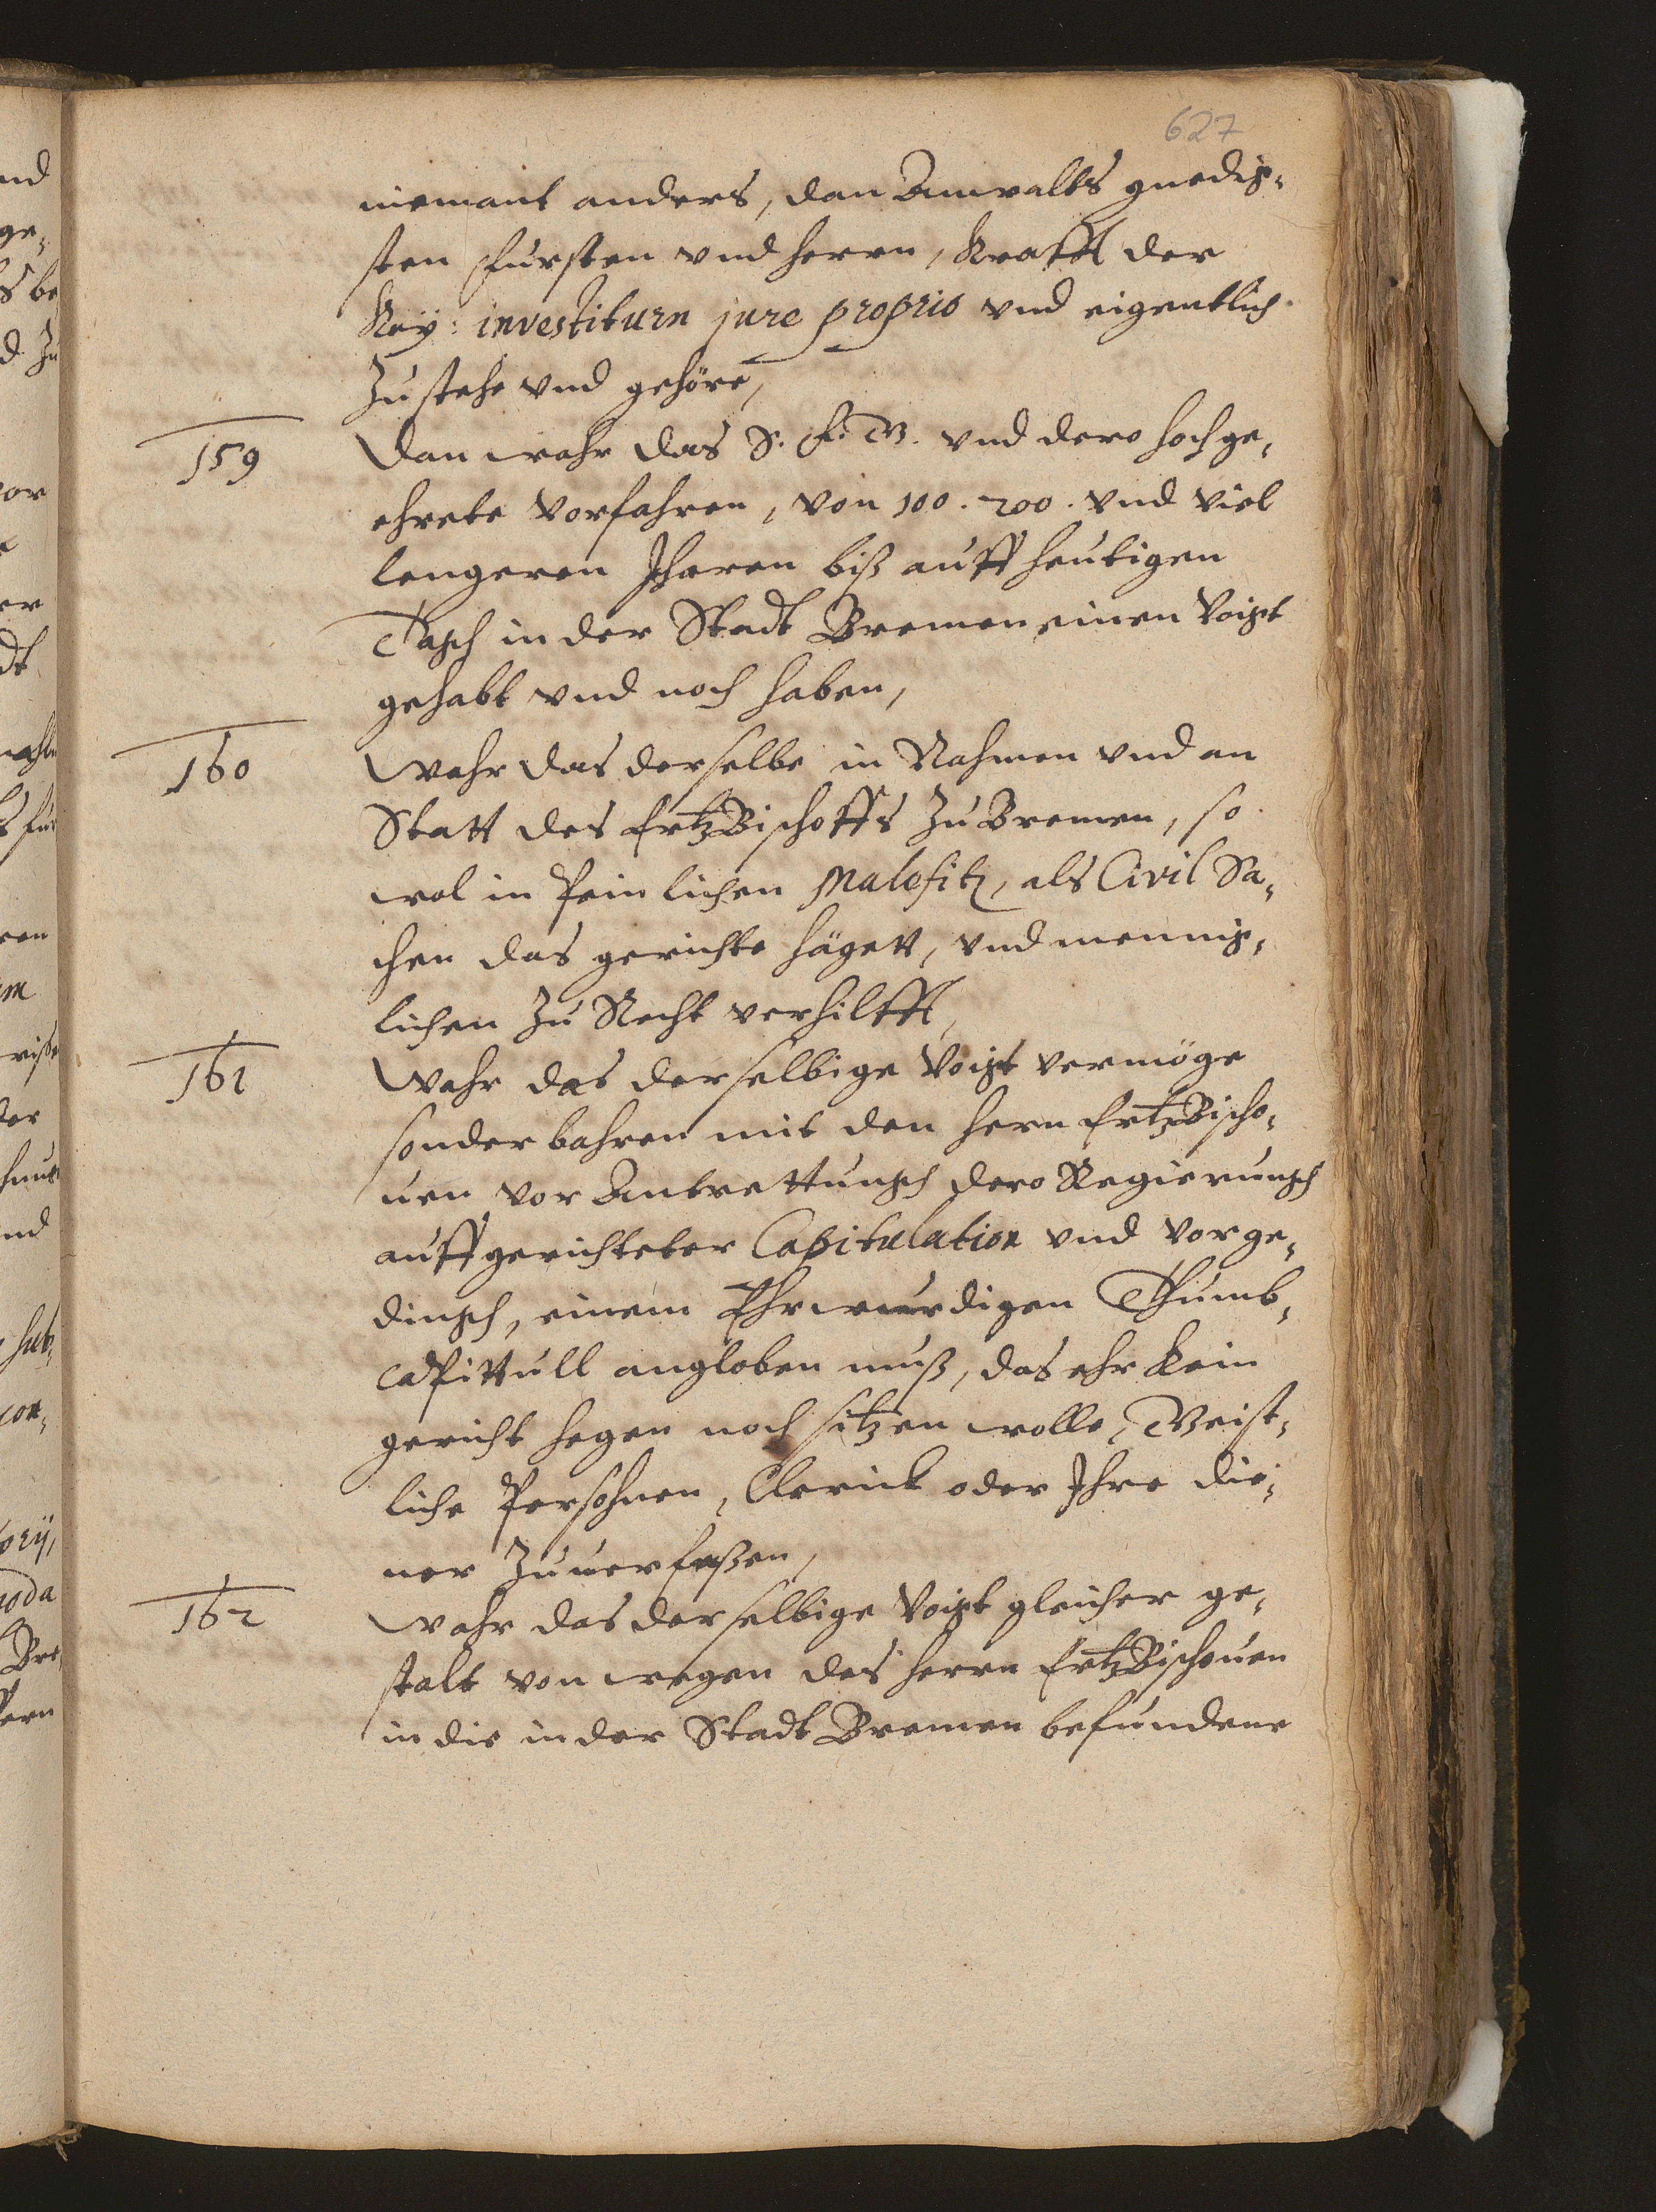 627
niemant anders, dan Anwalts gnedig-
sten Fursten vnd Herrn, Krafft der
Key: investiturn jure proprio vnd eigentlich
Zustehe vnd gehöre,
159 Dan wahr das S. F. G. vnd dero hochge-
ehrete Vorfahren, von 100. 200. vnd viel
lengeren Jharen biß auff heutigen
Tagh in der Stadt Bremen einen Voigt
gehabt vnd noch haben,
160 Wahr das derselbe in Nahmen vnd an
Statt des ErtzBischoffs Zu Bremen, so
wol in Peinlichen Malefitz, als Civil Sa-
chen das gerichte hägett, vnd mennig-
lichen Zu Recht verhilfft,
161 Wahr das derselbige Voigt vermöge
sonderbahren mit den Hern ErtzBischo-
uen vor Antrettungh dero Regierungh
auffgerichteter Capitulation vnd Vorge-
dingh, einem Ehrwurdigen Thumb-
capittull angloben muß, das ehr kein
gericht hegen noch sitzen wolle, Geist-
liche Persohnen, Clerick oder Ihre die-
ner Zuuerfaßen,
162 Wahr das derselbige Voigt gleicher ge-
stalt von wegen des Herrn ErtzBischouen
in die in der Stadt Bremen befundene